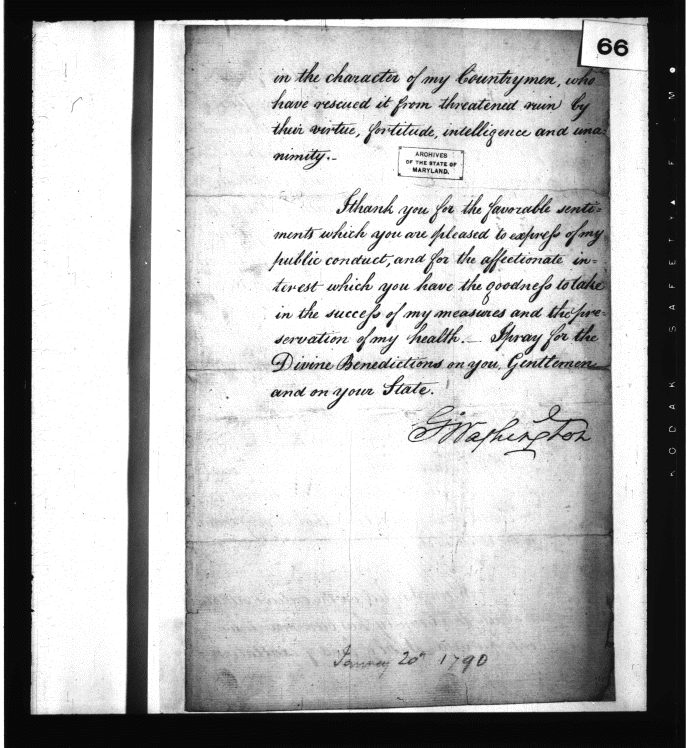 66
in the character of my Countrymen, who
have rescued it from threatened ruin by
their virtue, fortitude, intelligence and una-
nimity.-
ARCHIVES
OF THE STATE OF
MARYLAND.
I thank you for the favorable senti-
ments which you are pleased to express of my
public conduct, and for the affectionate in-
terest which you have the goodness to take
in the success of my measures and the pre-
servation of my health.— I pray for the
Divine Benedictions on you, Gentlemen
and on your State.
G. Washington
January 20th 1790
KODAK SAFETY FILM